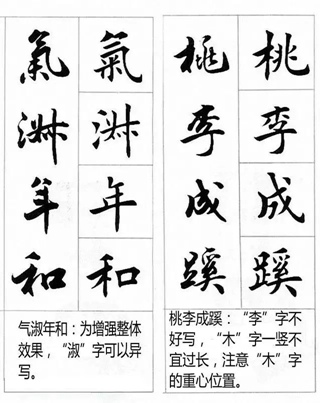 氣淑年和
氣淑年和
气淑年和：为增强整体
效果，“淑”字可以异
写。
桃李成蹊
桃李成蹊
桃李成蹊：“李”字不
好写，“木”字一竖不
宜过长，注意“木”字
的重心位置。